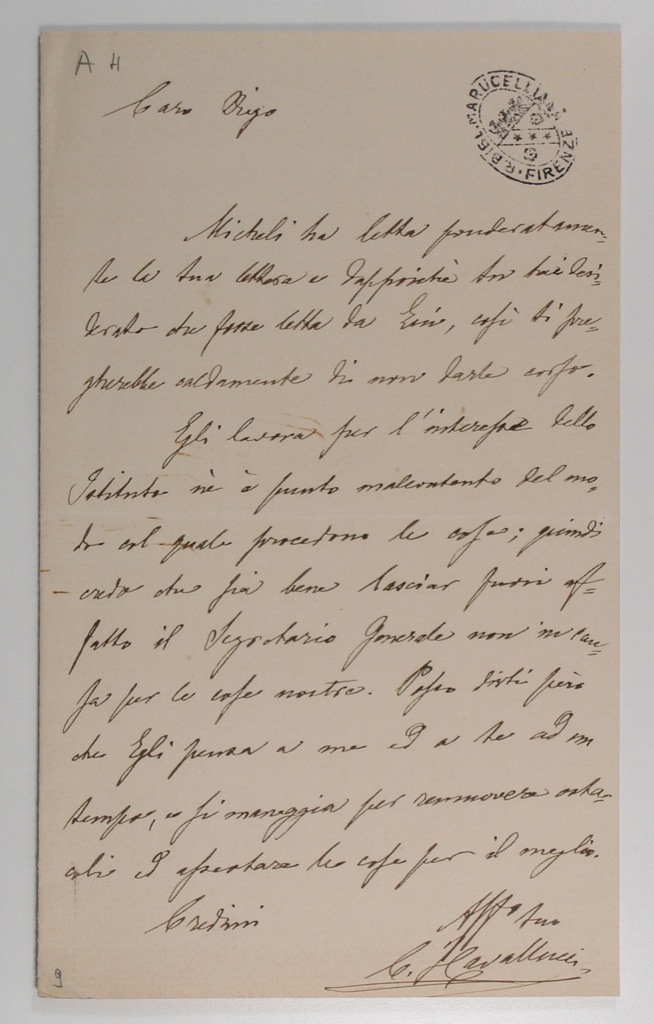 A H
R. BIBL. MARUCELLIANA FIRENZE
Caro Drigo
Micheli ha letta ponderatamen-
te la tua lettera e dappoichè tu hai desi-
derato che fosse letta da Lui, così ti pre-
gherebbe caldamente di non darle corso.
Egli lavora per l'interesse dello
Istituto nè è punto malcontento del mo-
do col quale procedono le cose; quindi
credo che sia bene lasciar fuori af-
fatto il Segretario Generale non in cau-
sa per le cose nostre. Posso dirti però
che Egli pensa a me ed a te ad un
tempo, e si maneggia per rimuovere osta-
coli ed assestare le cose per il meglio.
Credimi
Affo tuo
C. J. Cavallucci
9